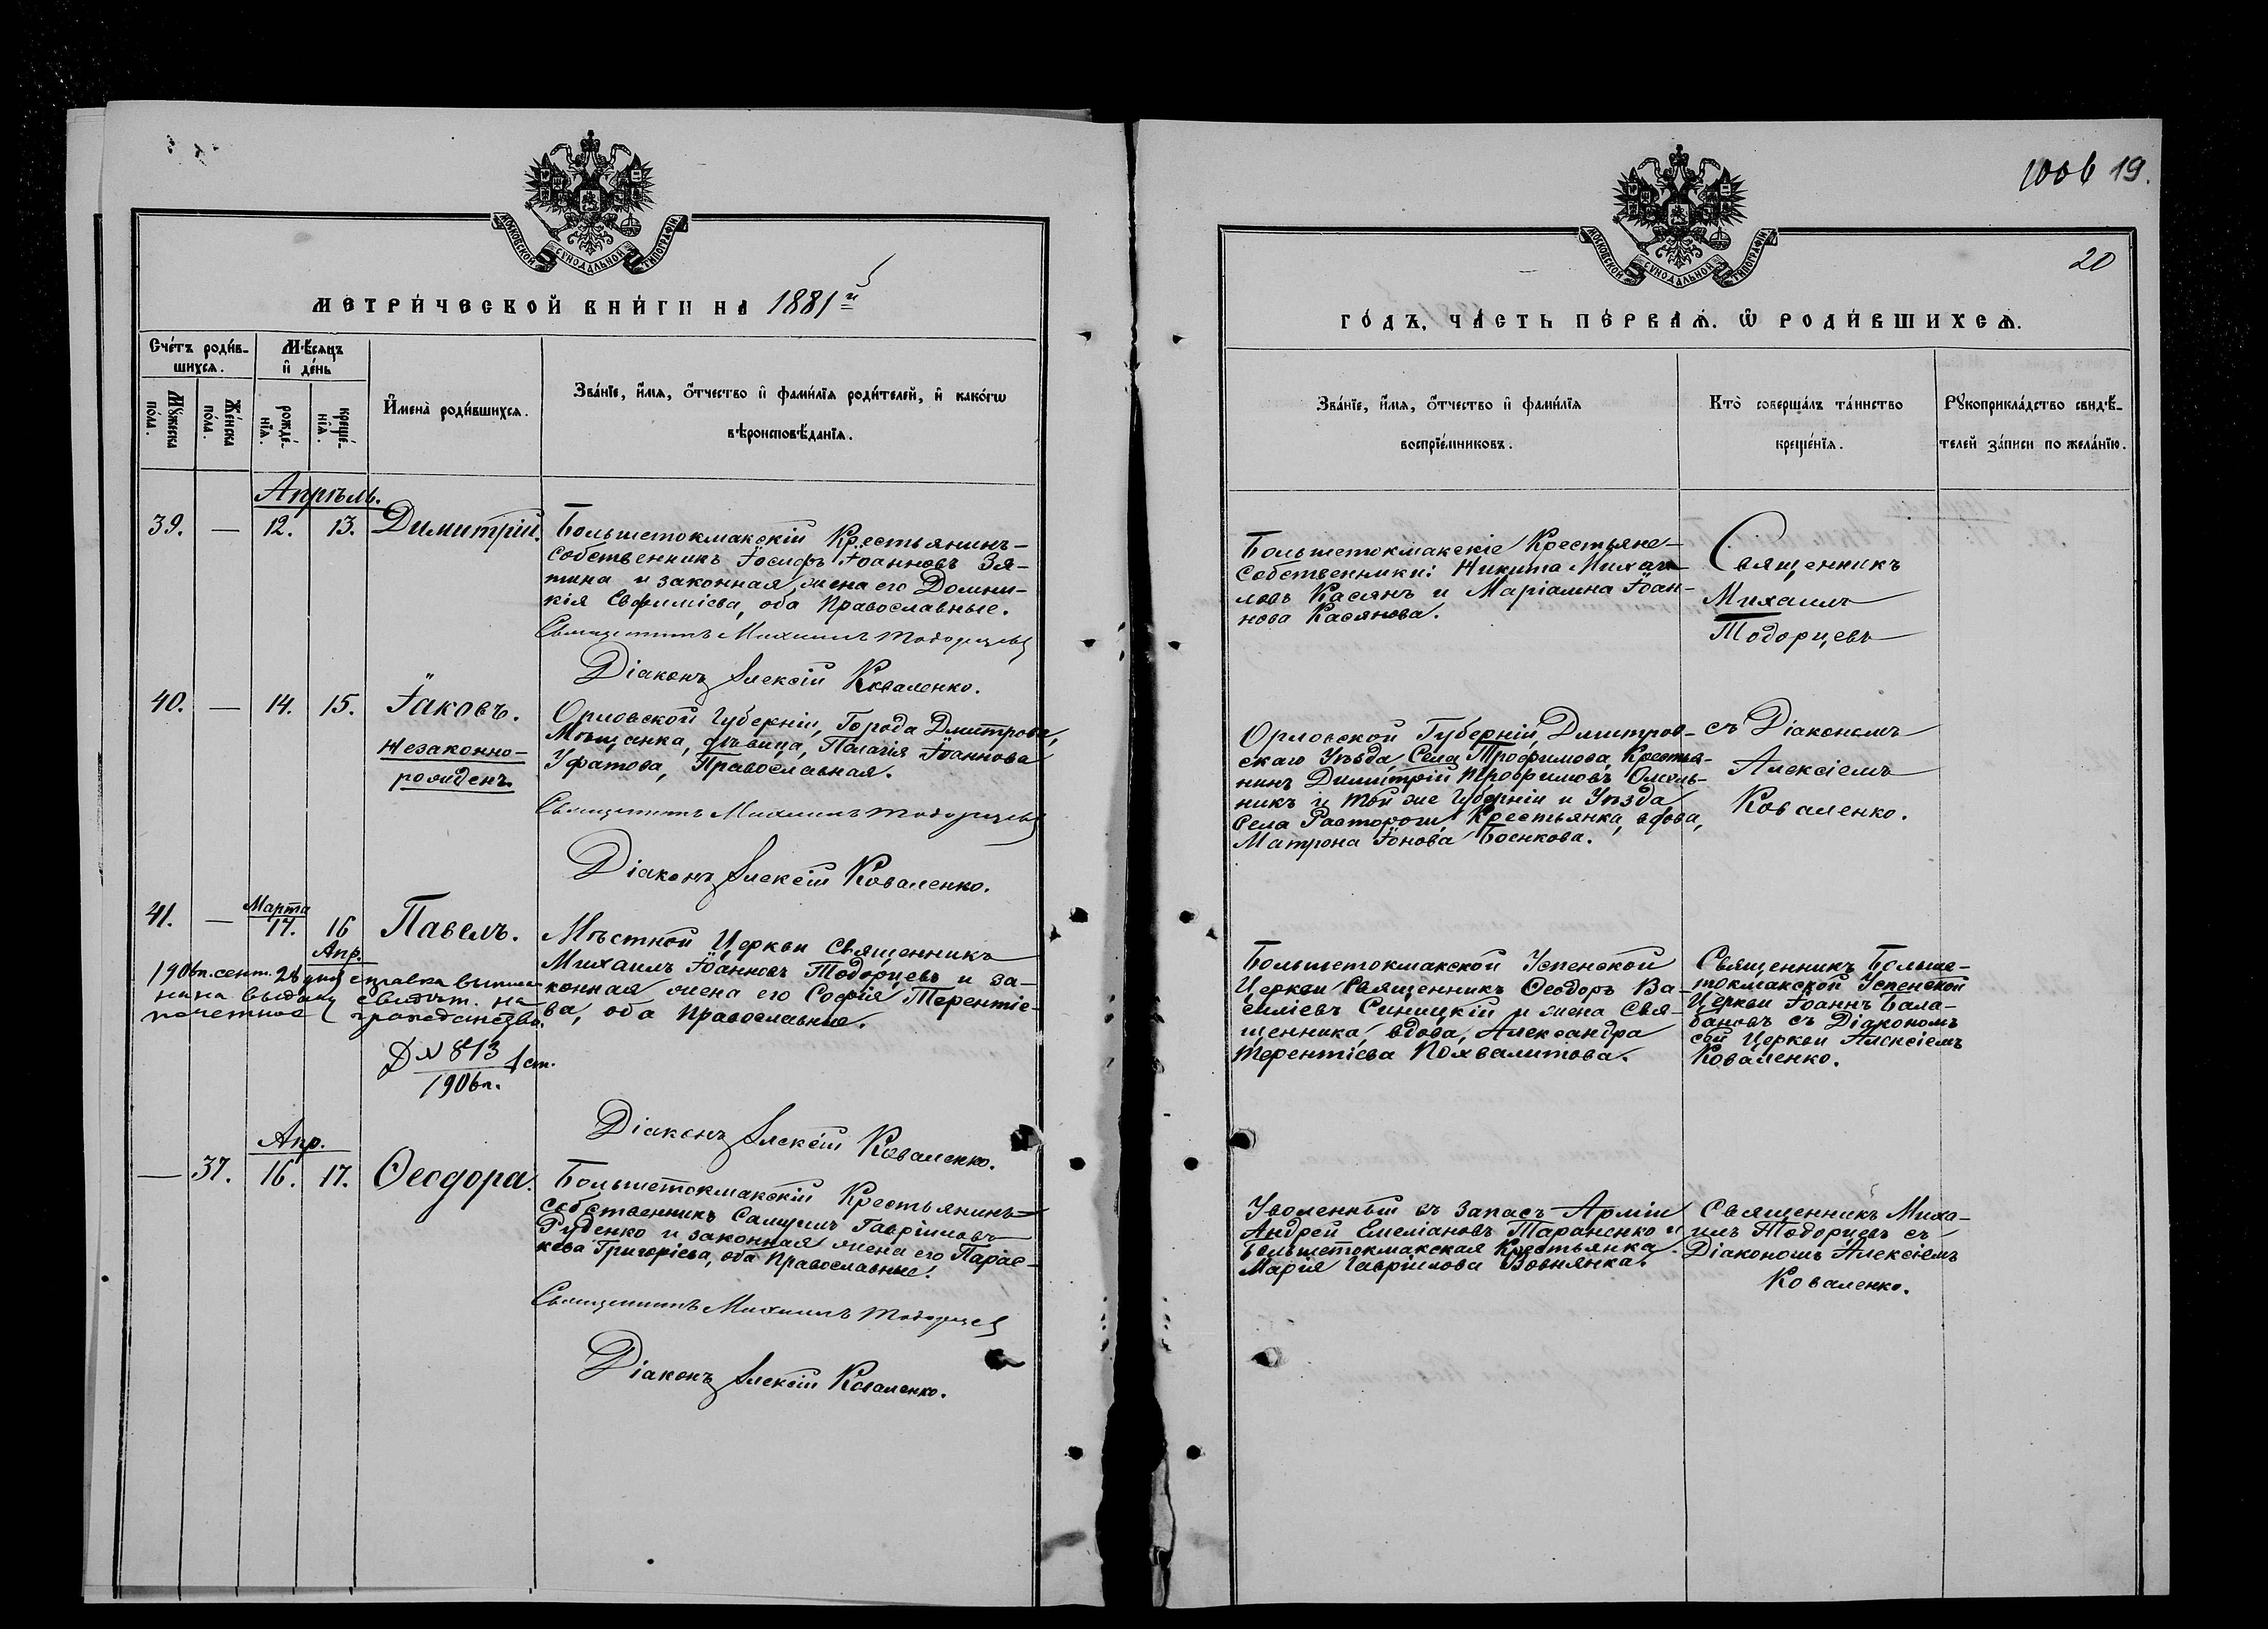 МОСКОВСКОЙ СѴНОДАЛЬНОЙ ТИПОГРАФІИ
МЕТРИ́ЧЕСКОЙ КНИ́ГИ НА 1881й
Сче́тъ роди́в-
шихсѧ.
Мѣ́сѧцъ
и҆ де́нь
Мꙋ́жеска
по́ла.
Же́нска
по́ла.
рожде́-
нїѧ.
креще́-
нїѧ.
И҆мена̀ роди́вшихсѧ.
Зва́нїе, и҆́мѧ, ѻ҆́тчество и҆ фами́лїѧ роди́телей, и҆ како́гѡ
вѣроисповѣ́данїѧ.
Апрѣль.
39. — 12. 13. Димитрій.
Большетокмакскій Крестьянинъ-
собственникъ Іосифъ Іоанновъ Зя-
тина и законная жена его Домни-
кія Евфиміева, оба Православные.
Священникъ Михаилъ Тодорцевъ
Діаконъ Алексій Коваленко.
40. — 14. 15. Іаковъ.
Незаконно-
рожденъ.
Орловской Губерніи, Города Дмитрова,
Мѣщанка, дѣвица, Палагія Іоаннова
Уфатова, Православная.
Священникъ Михаилъ Тодорцевъ
Діаконъ Алексій Коваленко.
41. — Марта 17. 16 Апр. Павелъ.
1906г. сент. 28 дня справка
на выдачу свидѣт. на
почетное гражданство.
Д № 813 1 ст.
1906г.
Мѣстной Церкви Священникъ
Михаилъ Іоанновъ Тодорцевъ и за-
конная жена его Софія Терентіе-
ва, оба православные.
Діаконъ Алексій Коваленко.
Апр.
— 37. 16. 17. Ѳеодора.
Большетокмакскій Крестьянинъ-
собственникъ Самуилъ Гавріиловъ
Руденко и законная жена его Парас-
кева Григоріева, оба Православные.
Священникъ Михаилъ Тодорцевъ
Діаконъ Алексій Коваленко.
19.
20
МОСКОВСКОЙ СѴНОДАЛЬНОЙ ТИПОГРАФІИ
ГО́ДЪ, ЧА́СТЬ ПЕ́РВАѦ. Ѡ҆ РОДИ́ВШИХСѦ.
Зва́нїе, и҆́мѧ, ѻ҆́тчество и҆ фами́лїѧ
воспрїе́мниковъ.
Кто̀ соверша́лъ та́инство
креще́нїѧ.
Рꙋкоприкла́дство свидѣ́-
телей за́писи по жела́нїю.
Большетокмакскіе Крестьяне-
собственники: Никита Михаи-
ловъ Касянъ и Маріамна Іоан-
нова Касянова.
Священникъ
Михаилъ
Тодорцевъ
Орловской Губерніи, Димитров-
скаго Уѣзда, Села Трофимова, Крестья-
нинъ Димитрій Трофимовъ
и той же Губерніи и Уѣзда
Села Крестьянка, вдова,
Матрона Іонова Боенкова.
съ Діакономъ
Алексіемъ
Коваленко.
Большетокмакской Успенской
Церкви Священникъ Ѳеодоръ Ва-
силіевъ Синицкій и жена Свя-
щенника, вдова, Александра
Терентіева Похвалитова.
Священникъ Больше-
токмакской Успенской
Церкви Іоаннъ Бала-
бановъ съ Діакономъ
сей Церкви Алексіемъ
Коваленко.
Уволенный въ запасъ Арміи
Андрей Емеліановъ Тараненко и
Большетокмакская Крестьянка
Марія Гавріилова Вовнянка.
Священникъ Миха-
илъ Тодорцевъ съ
Діакономъ Алексіемъ
Коваленко.